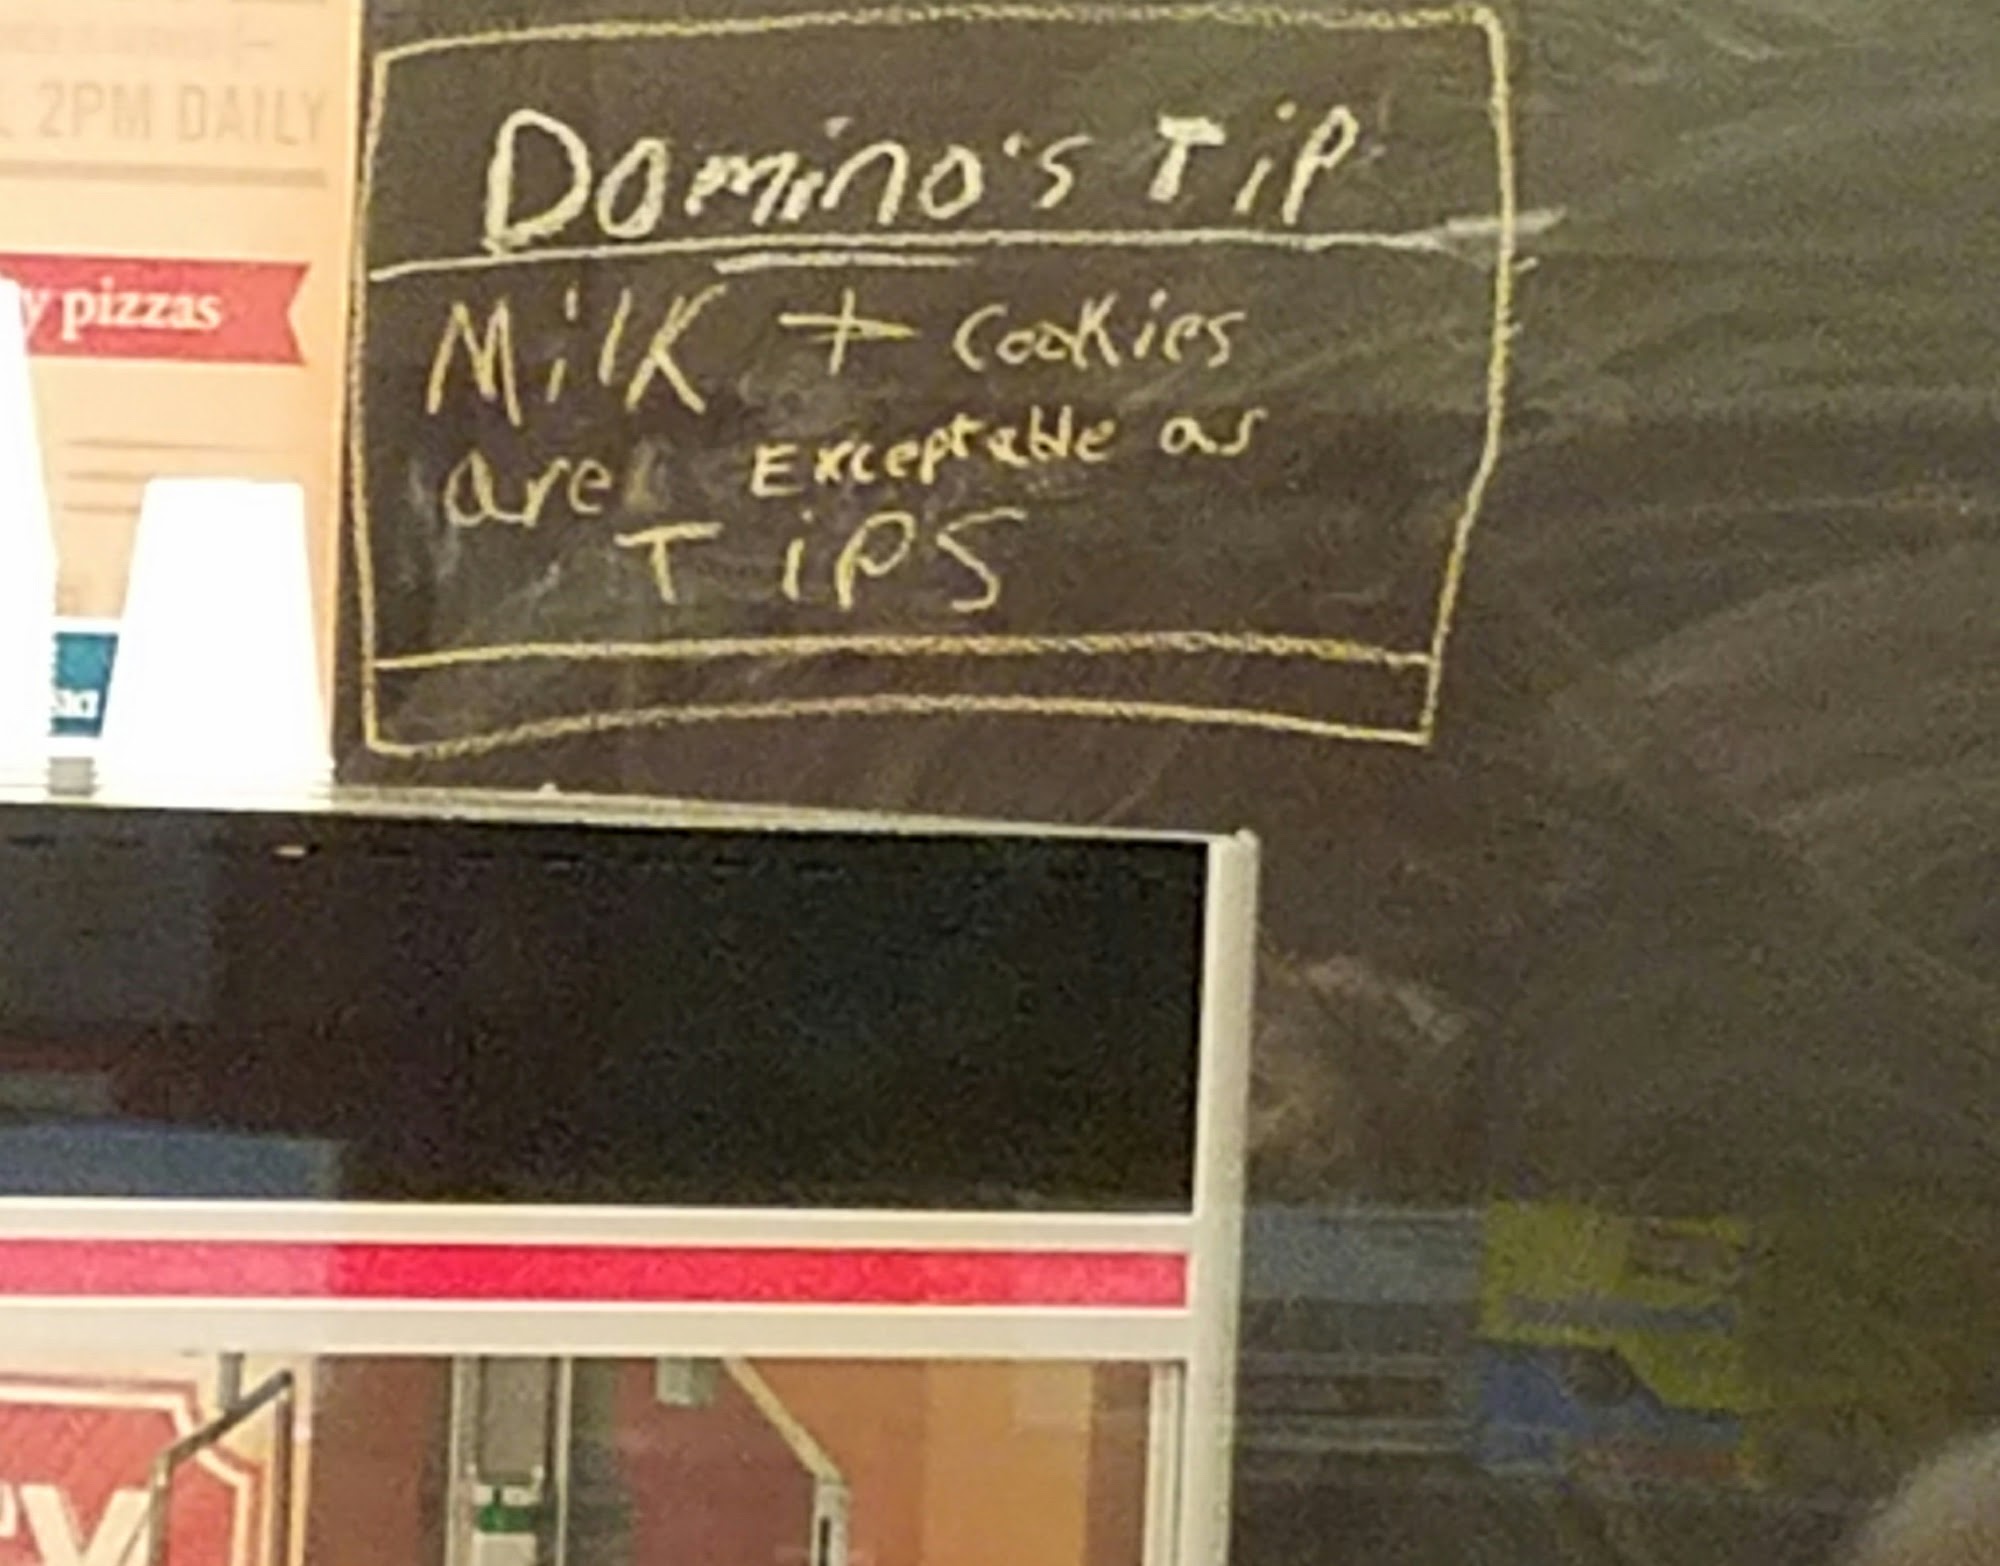 2PM DAILY
y pizzas
Domino's TiP
Milk + Cookies
are Exceptable as
TiPS